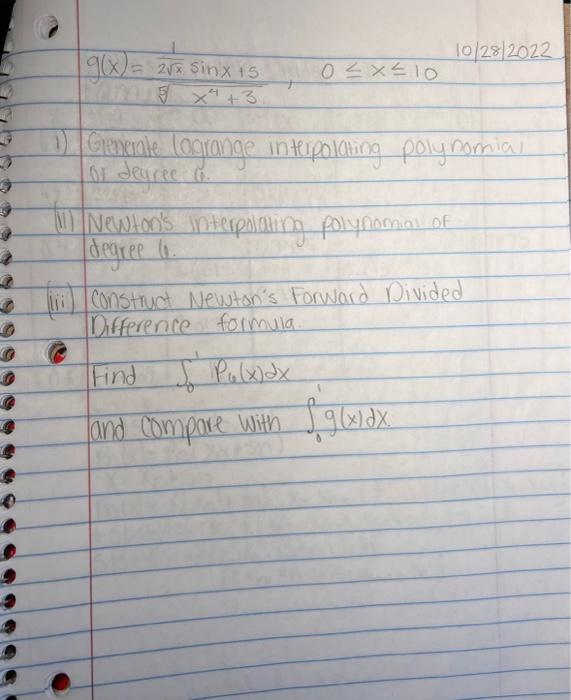 10/28/2022
g(x) = 1/(2√x) sinx + 5 / ⁵√(x⁴ + 3) , 0 ≤ x ≤ 10
i) Generate lagrange interpolating polynomial
of degree 6.
(ii) Newton's interpolating polynomial of
degree 6.
(iii) Construct Newton's Forward Divided
Difference formula.
Find ∫₀¹ P₆(x)dx
and compare with ∫₀¹ g(x)dx.